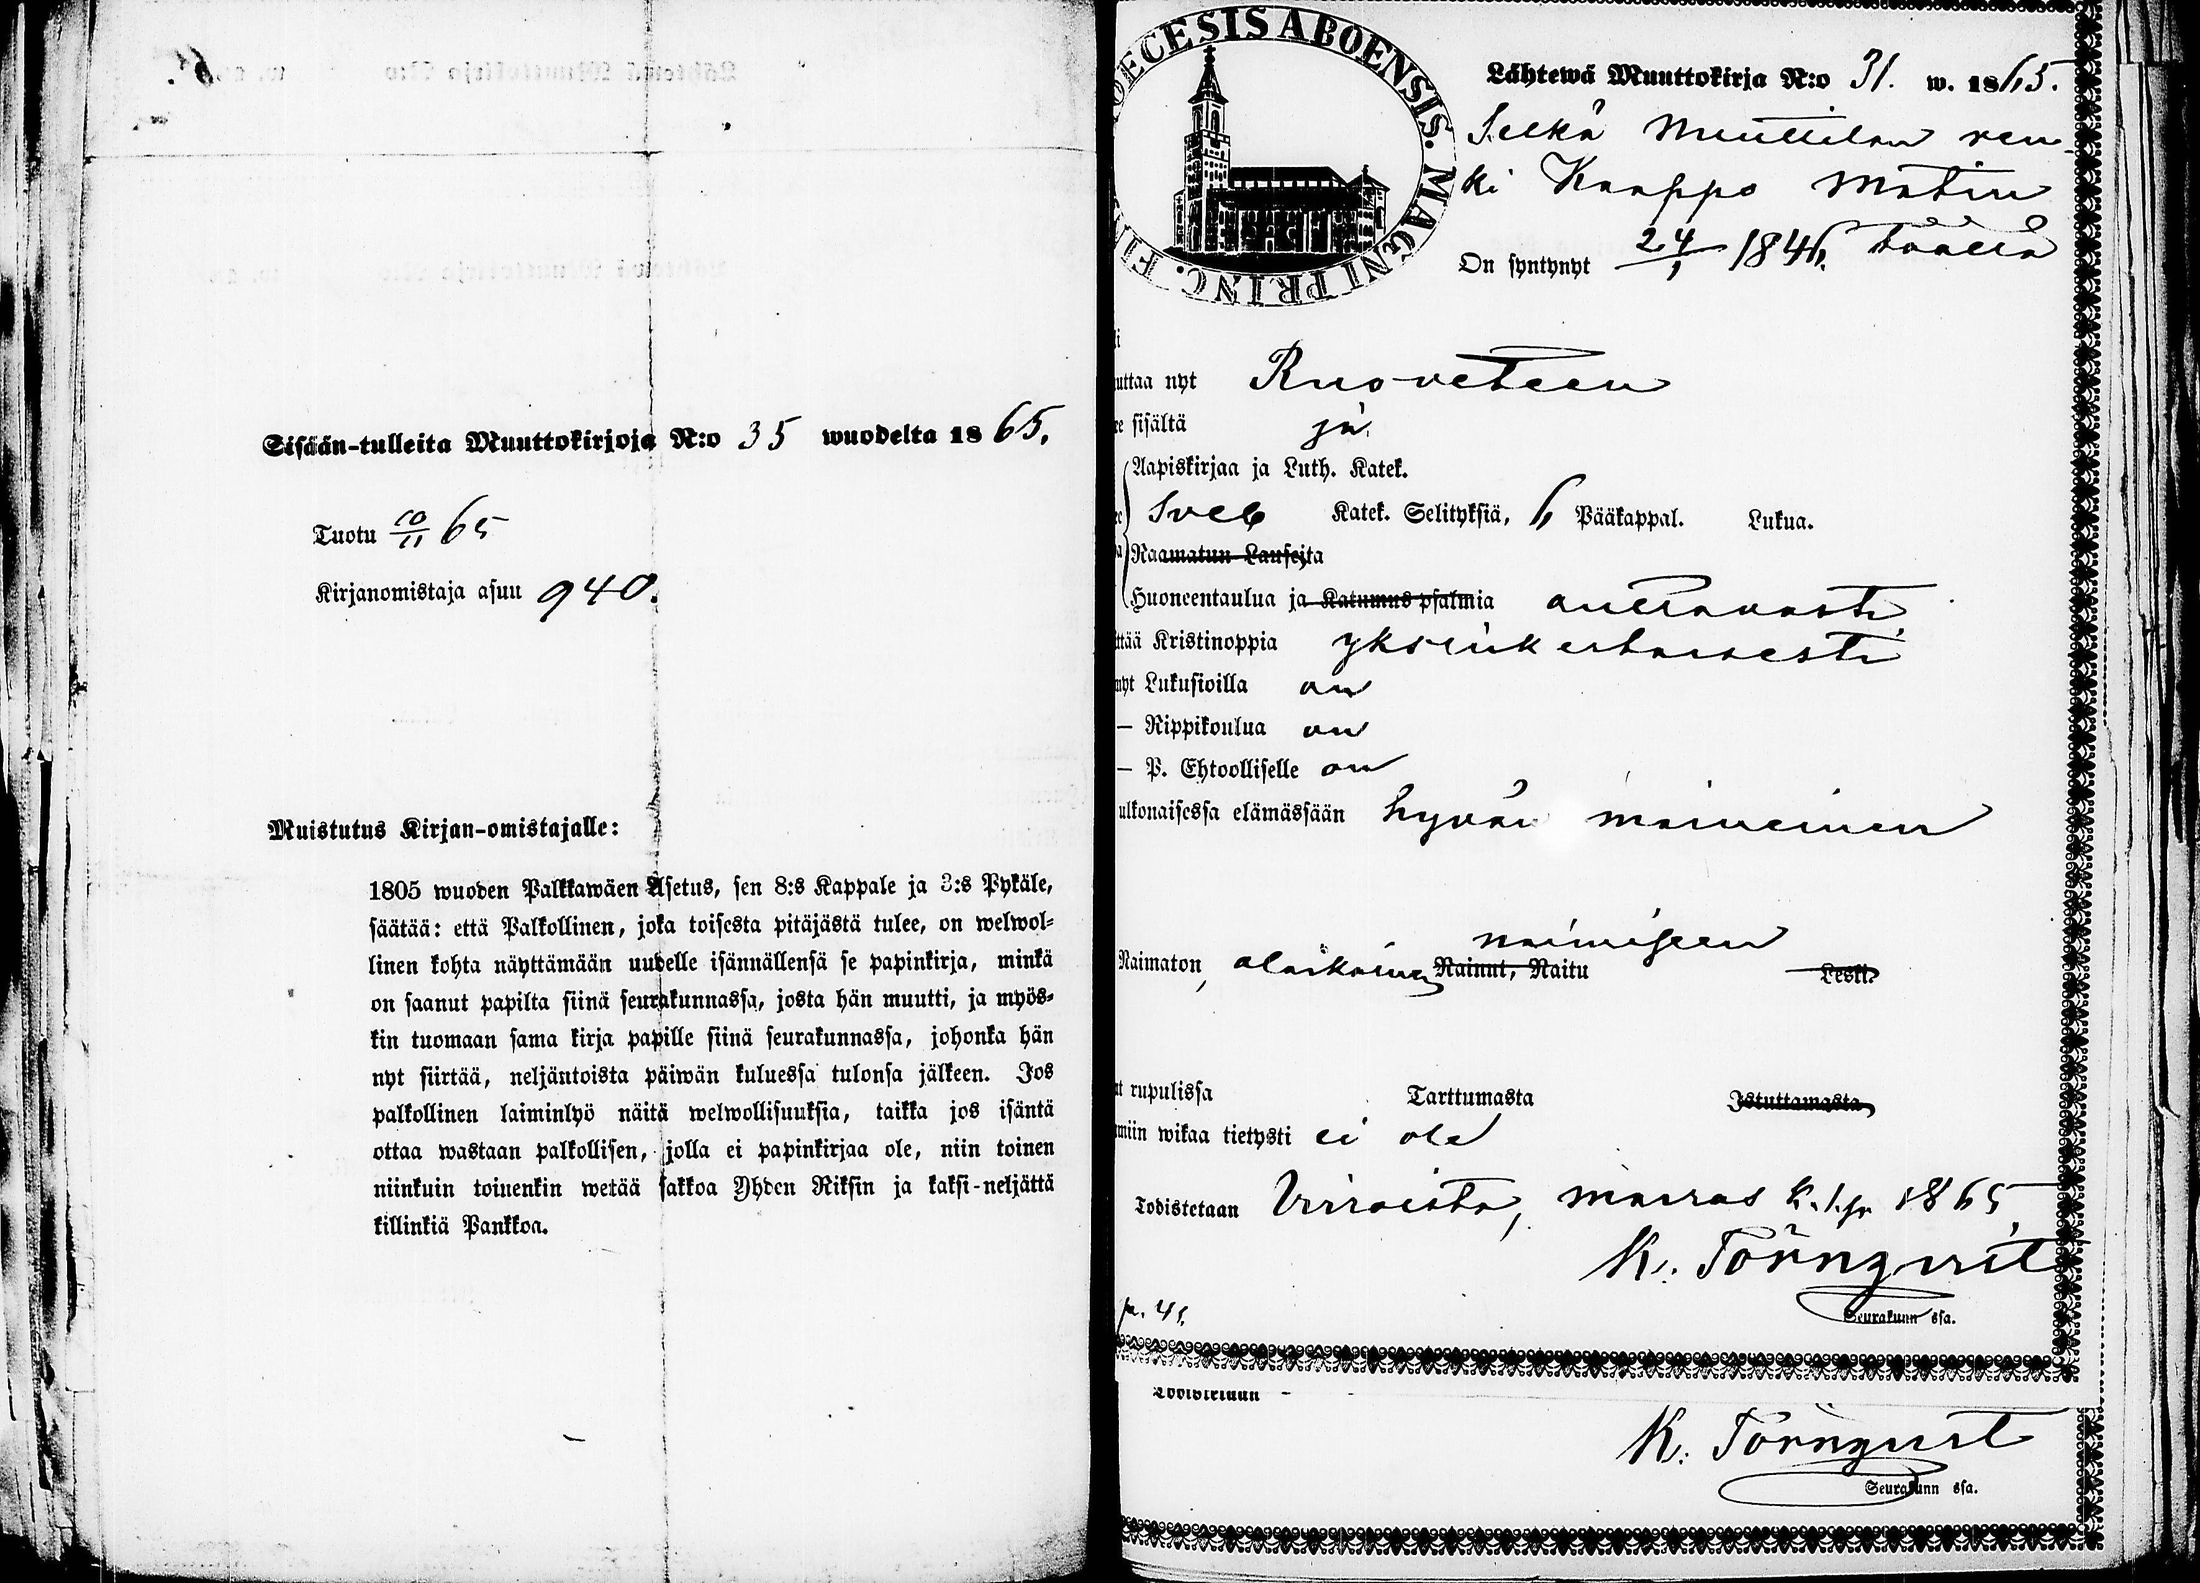 Sisään-tulleita Muuttokirjoja N:o 35 wuodelta 1865.
Tuotu 10/11 65
Kirjanomistaja asuu 940.
Muistutus Kirjan-omistajalle:
1805 wuoden Palkkawäen Asetus, sen 8:s Kappale ja 3:s Pykäle,
säätää: että Palkollinen, joka toisesta pitäjästä tulee, on welwol-
linen kohta näyttämään uudelle isännällensä se papinkirja, minkä
on saanut papilta siinä seurakunnassa, josta hän muutti, ja myös-
kin tuomaan sama kirja papille siinä seurakunnassa, johonka hän
nyt siirtää, neljäntoista päiwän kuluessa tulonsa jälkeen. Jos
palkollinen laiminlyö näitä welwollisuuksia, taikka jos isäntä
ottaa wastaan palkollisen, jolla ei papinkirjaa ole, niin toinen
niinkuin toinenkin wetää sakkoa Yhden Riksin ja kaksi-neljättä
killinkiä Pankkoa.
DECESIS ABOENSIS. MAGNI PRINC. FI
Lähtewä Muuttokirja N:o 31. w. 1865.
Selkä Muttilan ren-
ki Kaappo Matin
On syntynyt 24/1 1846. täällä
uttaa nyt Ruoveteen
e sisältä jä.
Aapiskirjaa ja Luth. Katek.
Sveb Katek. Selityksiä, 6 Pääkappal. Lukua.
Raamatun Lauseita
Huoneentaulua ja Katumus psalmia auttavasti
ttää Kristinoppia yksinkertaisesti
nyt Lukusioilla on
— Rippikoulua on
— P. Ehtoolliselle on
ulkonaisessa elämässään hyvän maineinen
naimiseen
Naimaton, alaikäinen Nainut, Naitu Leski.
t rupulissa Tarttumasta Istuttamasta
miin wikaa tietysti ei ole
Todistetaan Virroista, marras k. 1 p. 1865
K. Törnqvist
Seurakunn ssa.
pa. 41.
Todistetaan
K. Törnqvist
Seurakunn ssa.